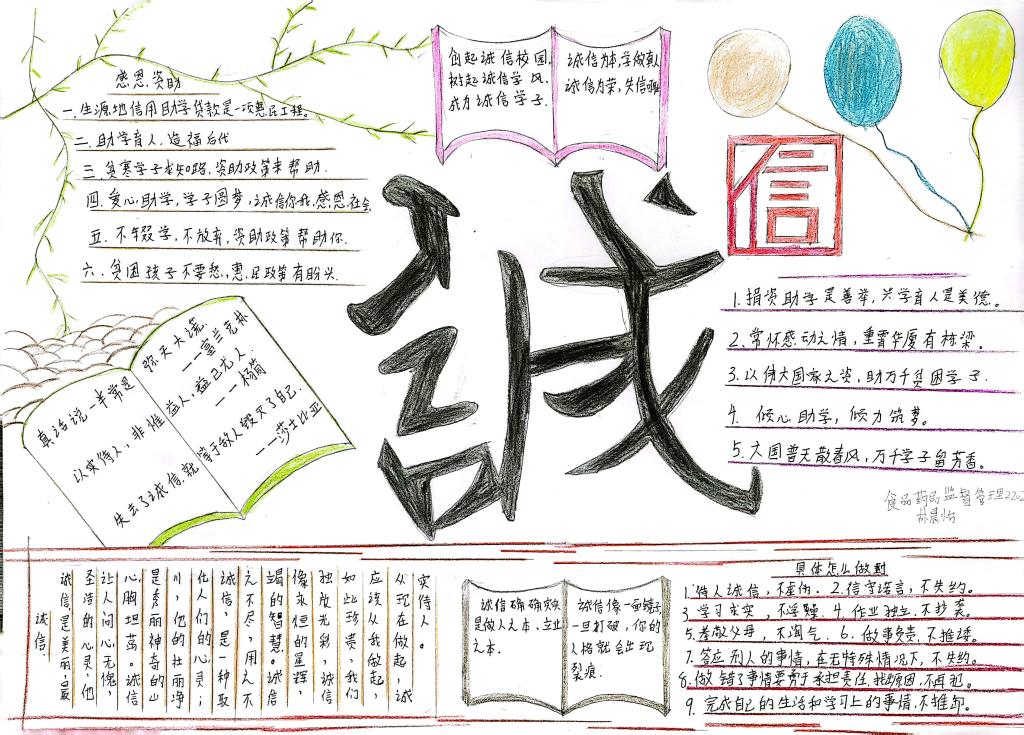 感恩资助
一.生源地信用助学贷款是一项惠民工程。
二.助学育人,造福后代
三.贫寒学子求知路,资助政策来帮助.
四.爱心助学,学子圆梦,诚信你我,感恩社会
五.不辍学,不放弃,资助政策帮助你.
六.贫困孩子不要愁,惠民政策有盼头.
创起诚信校园,
树起诚信学风,
成为诚信学子.
诚信为本,学做真人
诚信为荣,失信
信
誠
真话说一半常是弥天大谎.
——富兰克林
以实待人,非惟益人,益己尤人.
——杨简
失去了诚信,就等于敌人毁灭了自己.
——莎士比亚
1.捐资助学是善举,兴学育人是美德。
2、常怀感动之情,重霄华厦有栋梁。
3.以伟大国家之资,助万千贫困学子.
4.倾心助学,倾力筑梦。
5.大国普天散春风,万千学子留芳香。
食品药品监督管理
诚信.
诚信是美丽,最
圣洁的心灵,他
让人问心无愧,
心胸坦荡。诚信
是秀丽神奇的山
川,他的壮丽净
化人们的心灵;
诚信,是一种取
之不尽,用之不
竭的智慧。诚信
像永恒的星辉,
独放光彩,诚信
如此珍贵,我们
应该从我做起,
从现在做起,诚
实待人。
诚信确确实实
是做人之本、立业
之本.
诚信像一面镜子
一旦打破,你的
人格就会出现
裂痕.
具体怎么做到
1.待人诚信,不虚伪. 2.信守诺言,不失约。
3.学习求实,不浮躁. 4.作业独立,不抄袭。
5.孝敬父母,不淘气. 6.做事负责,不推诿。
7.答应别人的事情,在无特殊情况下,不失约。
8.做错了事情要勇于承担责任,找原因,不再犯。
9.完成自己的生活和学习上的事情,不推卸。